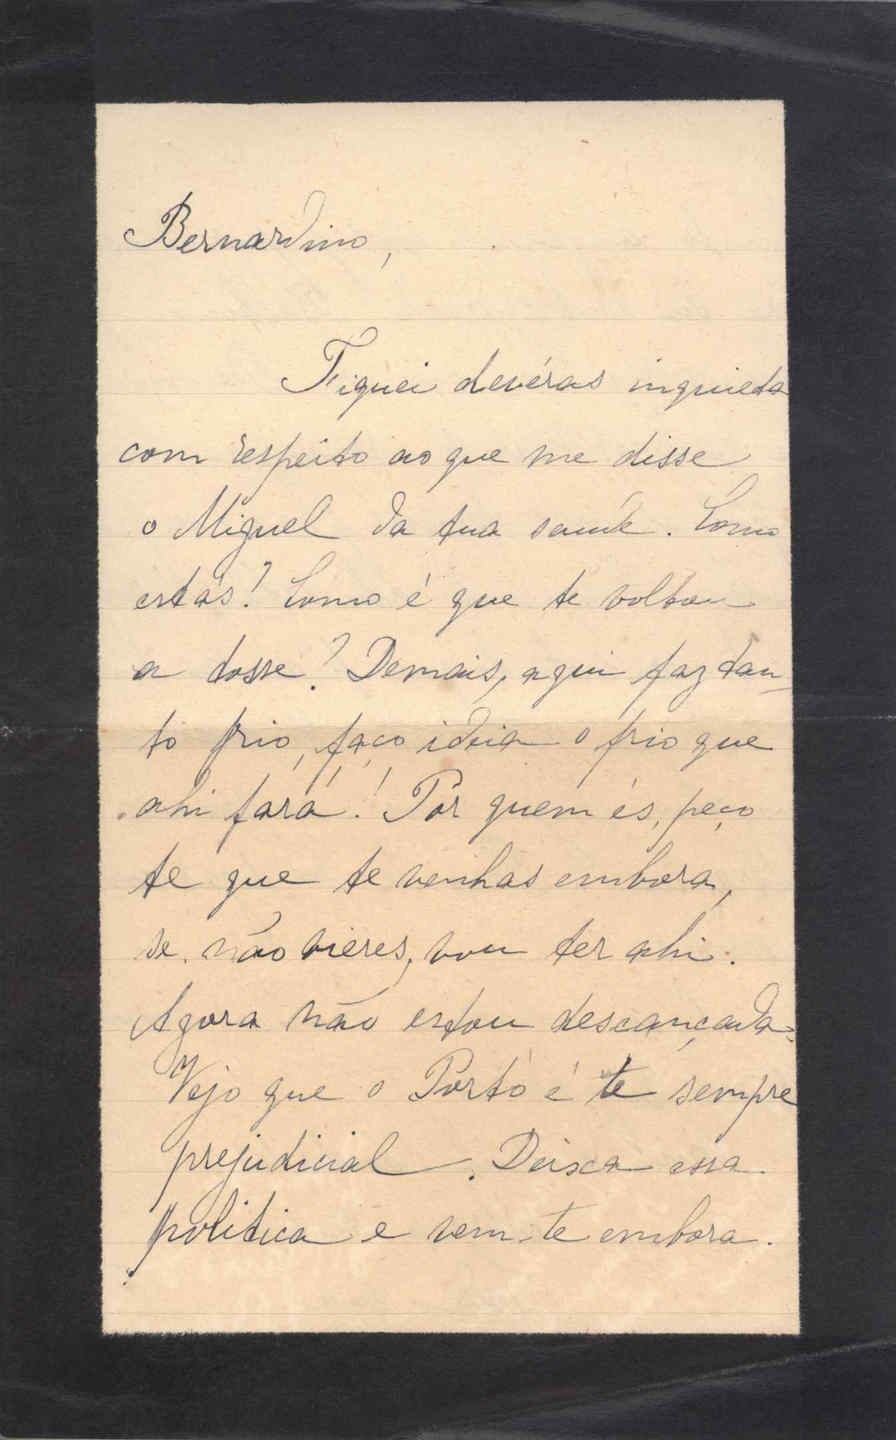 Bernardino,
Fiquei devéras inquieta
com respeito ao que me disse
o Miguel da tua saude. Como
estás? Como é que te voltou
a tosse? Demais, aqui faz tan-
to frio, faço ideia o frio que
ahi fará! Por quem és, peço
te que te venhas embora,
se não vieres, vou ter ahi.
Agora não estou descançada.
Vejo que o Porto é te sempre
prejudicial. Deixa essa
politica e vem-te embora.